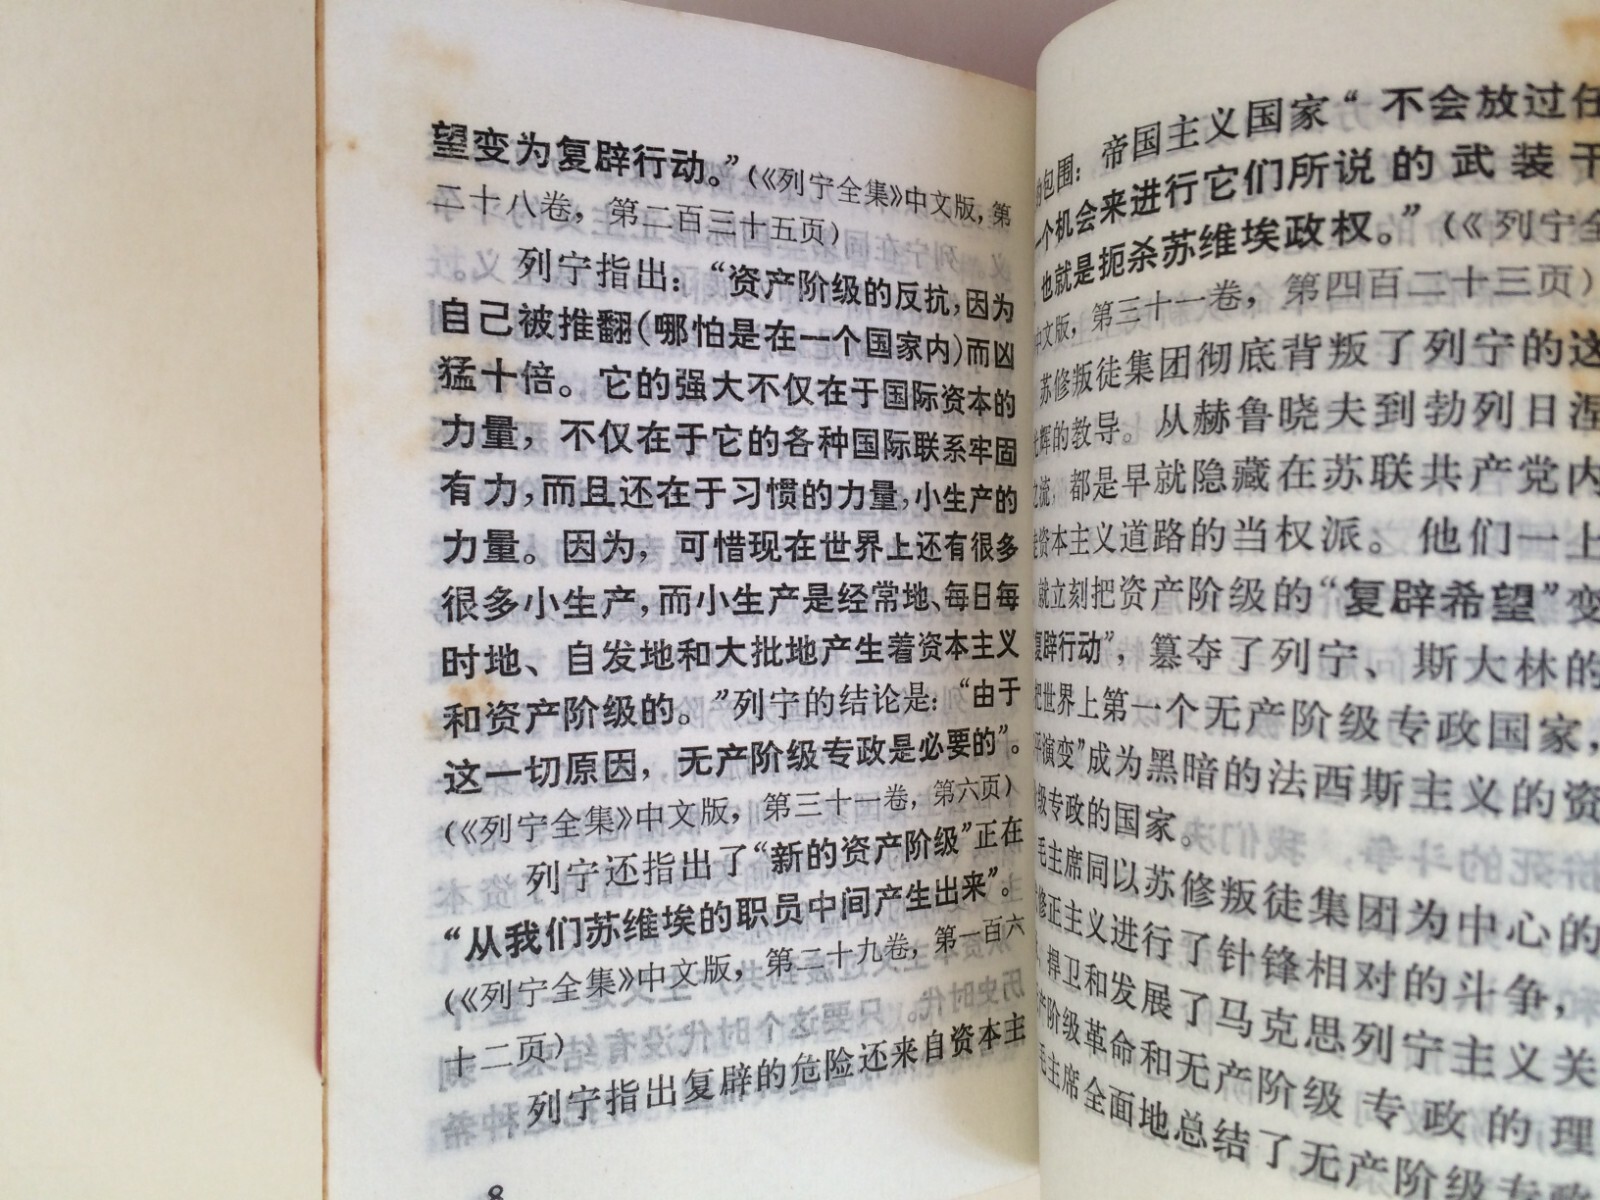 望变为复辟行动。”(《列宁全集》中文版，第
二十八卷，第二百三十五页)
列宁指出：“资产阶级的反抗，因为
自己被推翻(哪怕是在一个国家内)而凶
猛十倍。它的强大不仅在于国际资本的
力量，不仅在于它的各种国际联系牢固
有力，而且还在于习惯的力量，小生产的
力量。因为，可惜现在世界上还有很多
很多小生产，而小生产是经常地、每日每
时地、自发地和大批地产生着资本主义
和资产阶级的。”列宁的结论是：“由于
这一切原因，无产阶级专政是必要的”。
(《列宁全集》中文版，第三十一卷，第六页)
列宁还指出了“新的资产阶级”正在
“从我们苏维埃的职员中间产生出来”。
(《列宁全集》中文版，第二十九卷，第一百六
十二页)
列宁指出复辟的危险还来自资本主
8
包围：帝国主义国家“不会放过任
一个机会来进行它们所说的武装干
也就是扼杀苏维埃政权。”(《列宁全
中文版，第三十一卷，第四百二十三页)
苏修叛徒集团彻底背叛了列宁的这
辉的教导。从赫鲁晓夫到勃列日涅
流，都是早就隐藏在苏联共产党内
资本主义道路的当权派。他们一上
就立刻把资产阶级的“复辟希望”变
复辟行动”，篡夺了列宁、斯大林的
把世界上第一个无产阶级专政国家，
平演变”成为黑暗的法西斯主义的资
级专政的国家。
毛主席同以苏修叛徒集团为中心的
修正主义进行了针锋相对的斗争，
捍卫和发展了马克思列宁主义关
产阶级革命和无产阶级专政的理
毛主席全面地总结了无产阶级专政